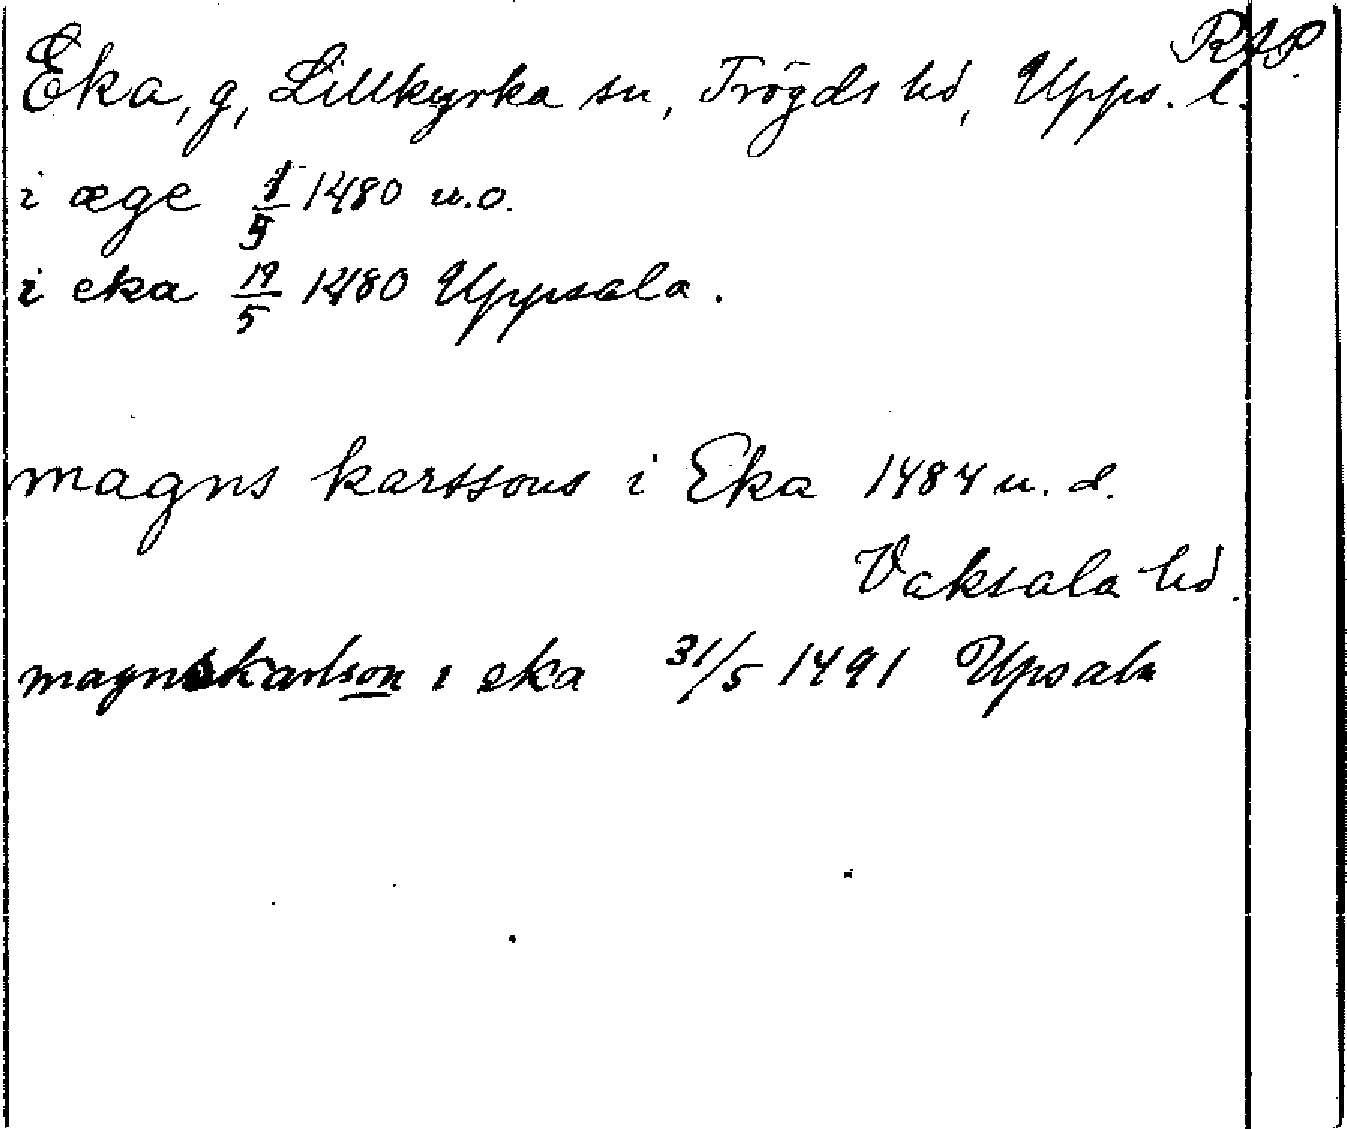 RAP.
Eka, g, Lillkyrka sn, Trögds hd, Upps. l.
i æge 1/5 1480 u.o.
i eka 19/5 1480 Uppsala.
magns karssons i Eka 1484 u. d.
Vaksala hd.
magnskarlson i eka 31/5 1491 Upsala